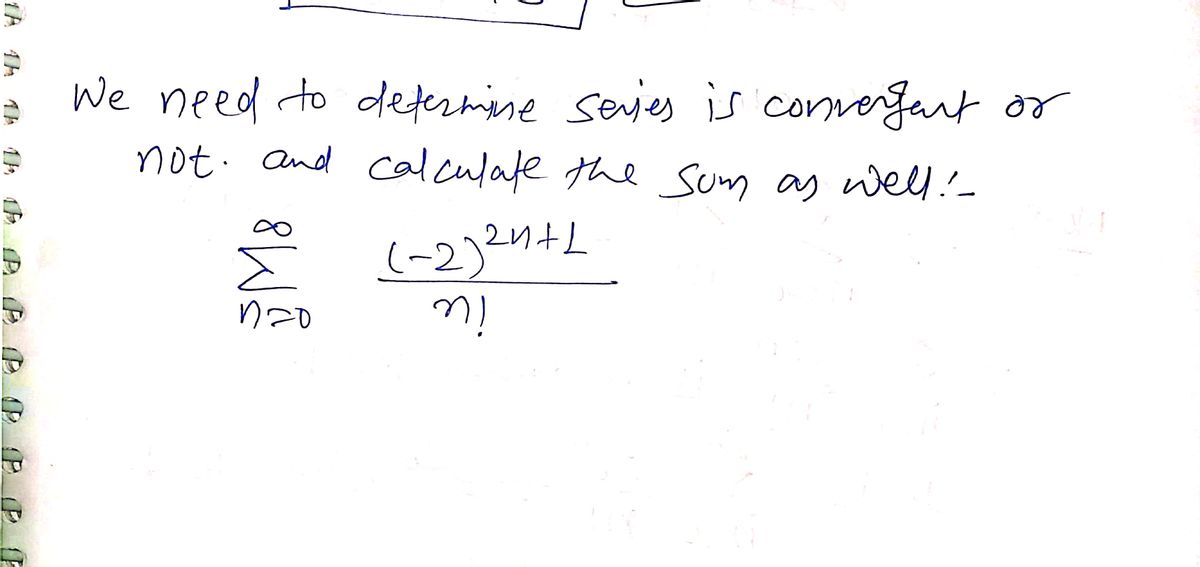 We need to determine series is convergent or
not. and calculate the sum as well:-
∞
Σ (-2)^{2n+1} / n!
n=0